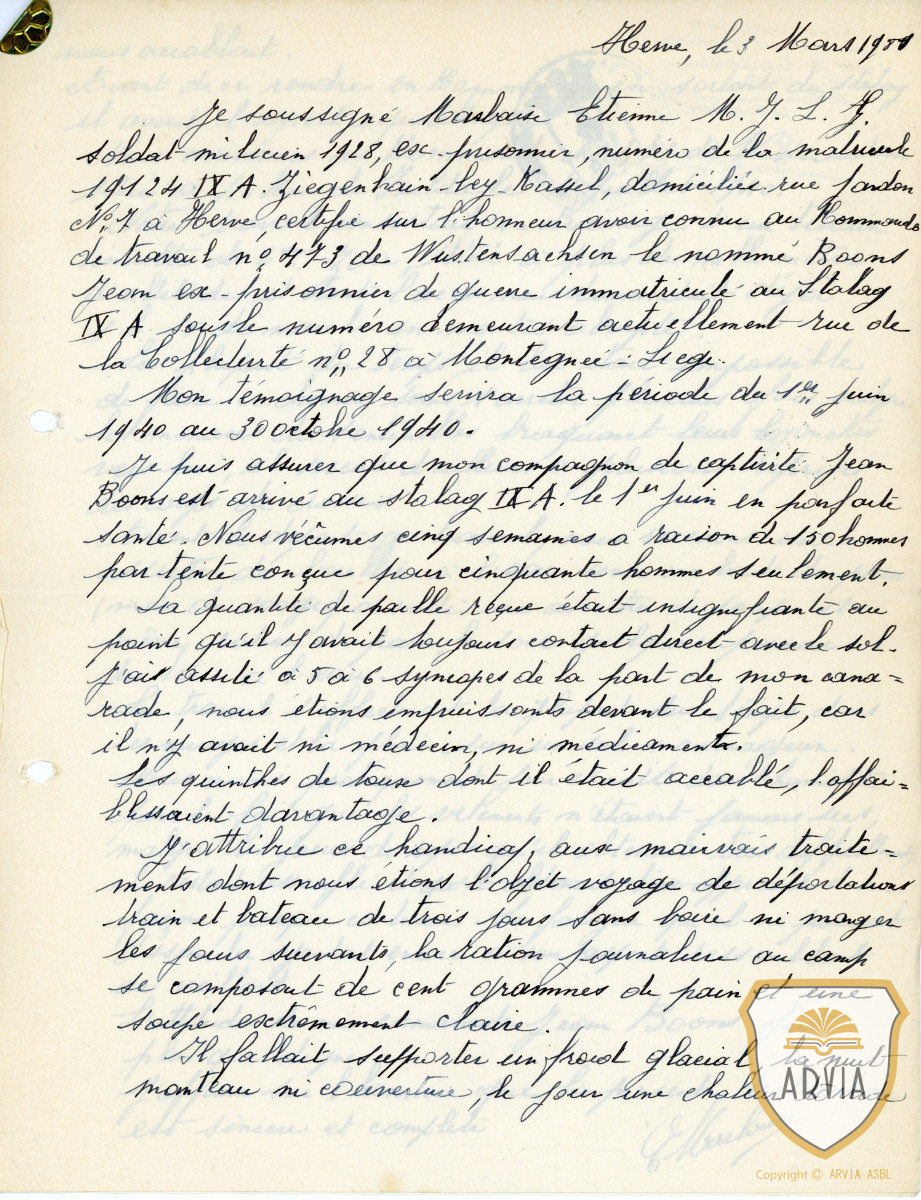 Herve, le 3 Mars 19
Je soussigné Marbaise Etienne M. J. L. G.
soldat milicien 1928, ex-prisonnier, numéro de la matricule
19124 IX A. Ziegenhain-bey-Kassel, domicilié rue Jardon
No. 7 à Herve, certifie sur l'honneur avoir connu au Kommando
de travail no 473 de Wustensachsen le nommé Boons
Jean ex-prisonnier de guerre immatriculé au Stalag
IX A sous le numéro demeurant actuellement rue de
la Collectivité no 28 à Montegnée-Liege.
Mon témoignage servira la période du 1er Juin
1940 au 30 octobre 1940.
Je puis assurer que mon compagnon de captivité Jean
Boons est arrivé au stalag IX A. le 1er Juin en parfaite
santé. Nous vécûmes cinq semaines a raison de 150 hommes
par tente conçue pour cinquante hommes seulement.
La quantité de paille reçue était insignifiante au
point qu'il y avait toujours contact direct avec le sol.
J'ais assité à 5 à 6 syncopes de la part de mon cama=
rade, nous étions impuissants devant le fait, car
il n'y avait ni médecin, ni médicaments.
Les quinthes de toux dont il était accablé, l'affai=
blissaient davantage.
J'attribue ce handicap, aux mauvais traite=
ments dont nous étions l'objet voyage de déportations
train et bateau de trois jours sans boire ni manger
les jours suivants, la ration journaliere au camp
se composait de cent grammes de pain et une
soupe extrêmement claire.
Il fallait supporter un froid glacial, la nuit
manteau ni couverture, le jour une chaleur
ARVIA
Copyright © ARVIA ASBL